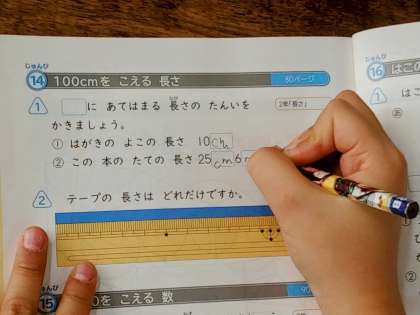 じゅんび
14 100cmを こえる 長さ 80ページ
1 に あてはまる 長さの たんいを
ながさ
2年「長さ」
かきましょう。
① はがきの よこの 長さ 10cm
② この 本の たての 長さ 25cm6
2 テープの 長さは どれだけですか。
じゅんび
15 0を こえる 数
じゅんび
16 はこの
1
①
②